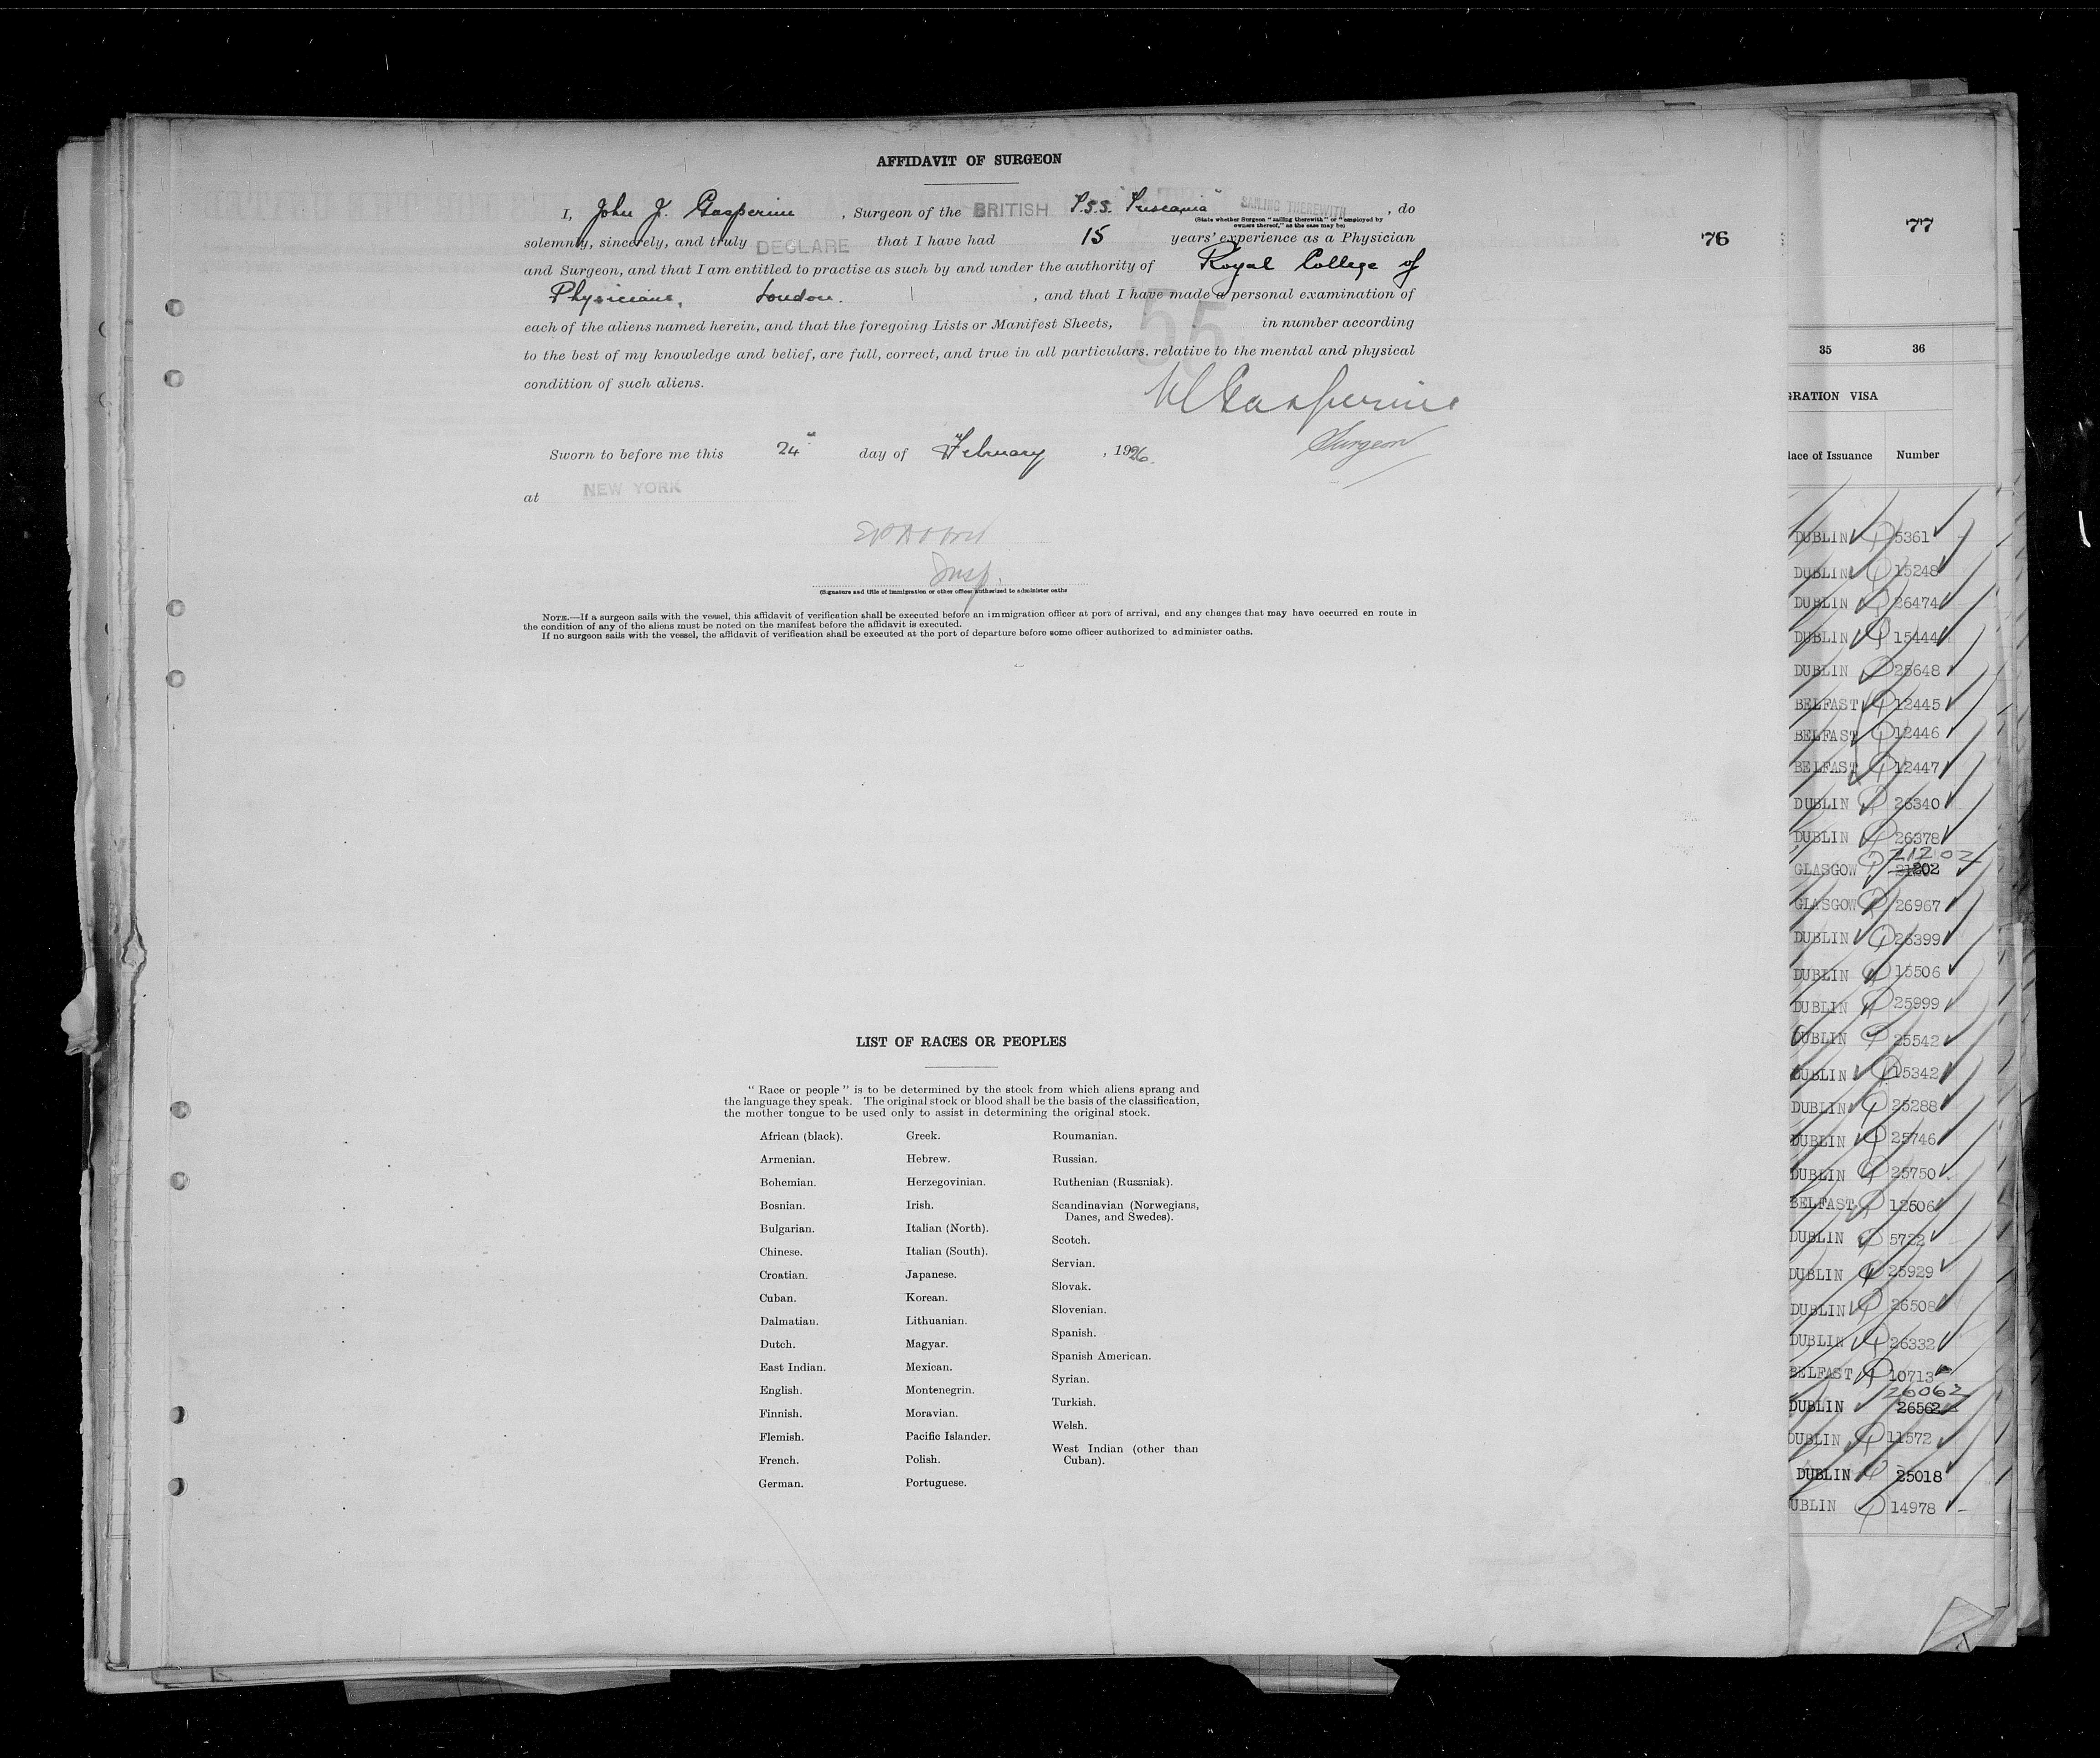 AFFIDAVIT OF SURGEON
I, John J. Gasperine, Surgeon of the BRITISH T.S.S. "Tuscania" SAILING THEREWITH, do
(State whether Surgeon "sailing therewith" or "employed by
owners thereof," as the case may be)
solemnly, sincerely, and truly DECLARE that I have had 15 years' experience as a Physician
and Surgeon, and that I am entitled to practise as such by and under the authority of Royal College of
Physicians, London. , and that I have made a personal examination of
each of the aliens named herein, and that the foregoing Lists or Manifest Sheets, 55 in number according
to the best of my knowledge and belief, are full, correct, and true in all particulars. relative to the mental and physical
condition of such aliens.
Gasperine
Surgeon
Sworn to before me this 24" day of February, 1926.
at NEW YORK
Insp.
(Signature and title of immigration or other officer authorized to administer oaths
NOTE.—If a surgeon sails with the vessel, this affidavit of verification shall be executed before an immigration officer at port of arrival, and any changes that may have occurred en route in
the condition of any of the aliens must be noted on the manifest before the affidavit is executed.
If no surgeon sails with the vessel, the affidavit of verification shall be executed at the port of departure before some officer authorized to administer oaths.
LIST OF RACES OR PEOPLES
"Race or people" is to be determined by the stock from which aliens sprang and
the language they speak. The original stock or blood shall be the basis of the classification,
the mother tongue to be used only to assist in determining the original stock.
African (black).
Armenian.
Bohemian.
Bosnian.
Bulgarian.
Chinese.
Croatian.
Cuban.
Dalmatian.
Dutch.
East Indian.
English.
Finnish.
Flemish.
French.
German.
Greek.
Hebrew.
Herzegovinian.
Irish.
Italian (North).
Italian (South).
Japanese.
Korean.
Lithuanian.
Magyar.
Mexican.
Montenegrin.
Moravian.
Pacific Islander.
Polish.
Portuguese.
Roumanian.
Russian.
Ruthenian (Russniak).
Scandinavian (Norwegians,
Danes, and Swedes).
Scotch.
Servian.
Slovak.
Slovenian.
Spanish.
Spanish American.
Syrian.
Turkish.
Welsh.
West Indian (other than
Cuban).
76
77
35 36
GRATION VISA
lace of Issuance Number
DUBLIN 5361
DUBLIN 15248
DUBLIN 26474
DUBLIN 15444
DUBLIN 25648
BELFAST 12445
BELFAST 12446
BELFAST 12447
DUBLIN 26340
DUBLIN 26378
21202
GLASGOW 202
GLASGOW 26967
DUBLIN 26399
DUBLIN 15506
DUBLIN 25999
DUBLIN 25542
DUBLIN 15342
DUBLIN 25288
DUBLIN 25746
DUBLIN 25750
BELFAST 12506
DUBLIN 5722
DUBLIN 25929
DUBLIN 26508
DUBLIN 26332
BELFAST 10713
26062
DUBLIN 26562
DUBLIN 11572
DUBLIN 25018
UBLIN 14978